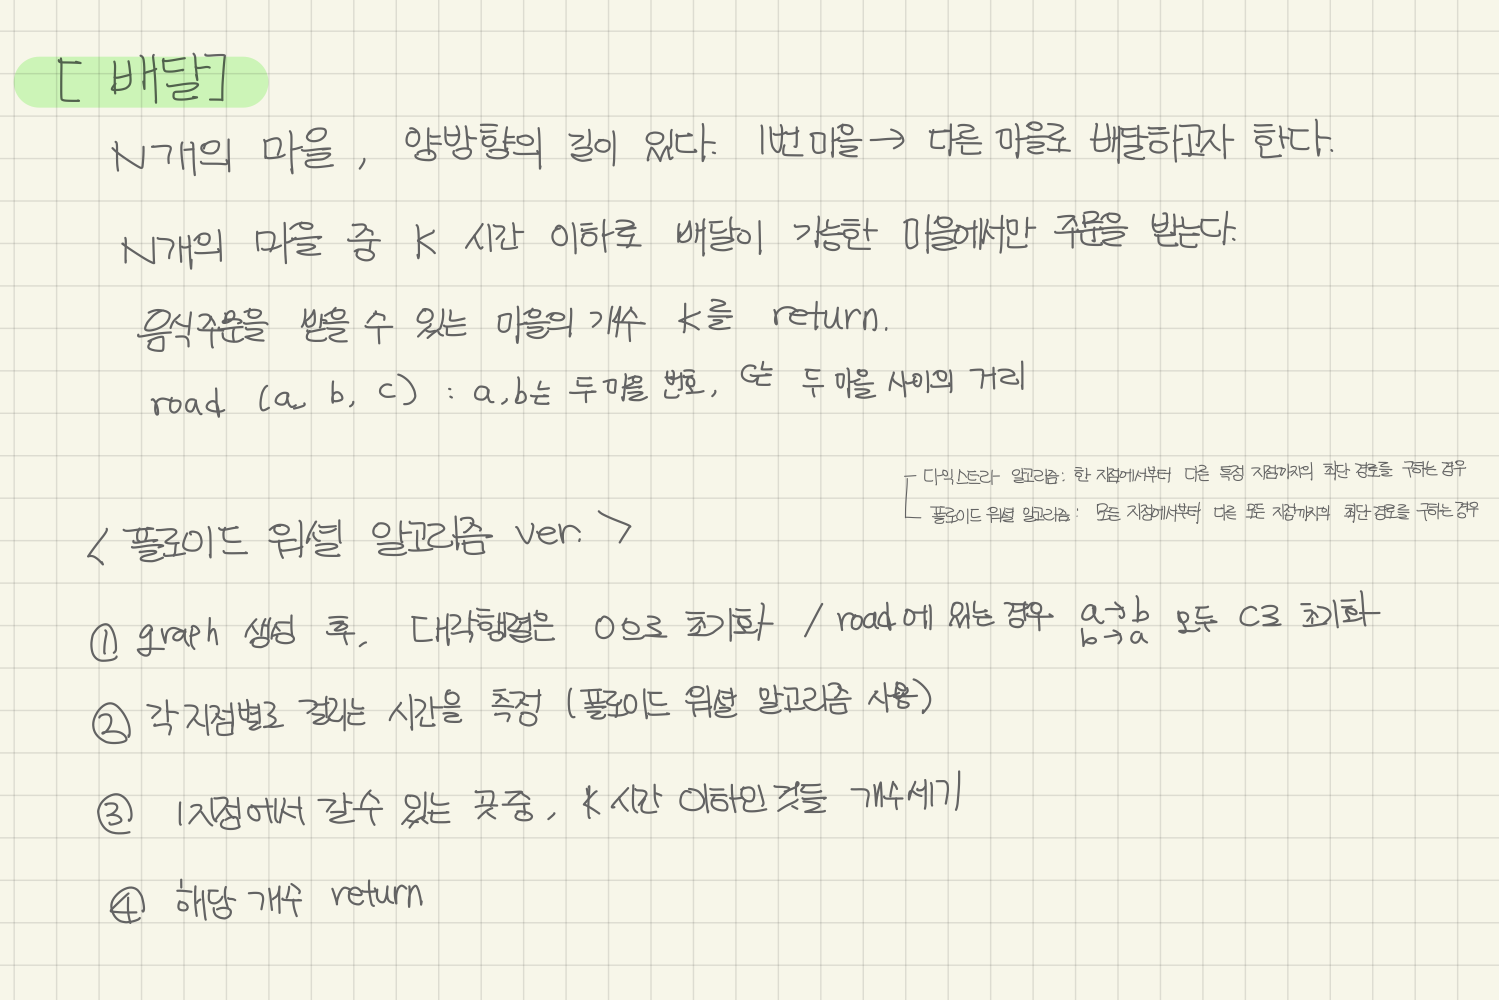 [ 배달 ]
N개의 마을 , 양방향의 길이 있다. 1번 마을 → 다른 마을로 배달하고자 한다.
N개의 마을 중 K 시간 이하로 배달이 가능한 마을에서만 주문을 받는다.
음식주문을 받을 수 있는 마을의 개수 K를 return.
road (a, b, c) : a, b는 두 마을 번호, c는 두 마을 사이의 거리
다익스트라 알고리즘 : 한 지점에서부터 다른 특정 지점까지의 최단 경로를 구하는 경우
플로이드 워셜 알고리즘 : 모든 지점에서부터 다른 모든 지점까지의 최단 경로를 구하는 경우
< 플로이드 워셜 알고리즘 ver. >
① graph 생성 후, 대각행렬은 0으로 초기화 / road에 있는 경우 a→b b→a 모두 c로 초기화
② 각 지점별로 걸리는 시간을 측정 (플로이드 워셜 알고리즘 사용)
③ 1지점에서 갈수 있는 곳 중, K 시간 이하인 것들 개수세기
④ 해당 개수 return